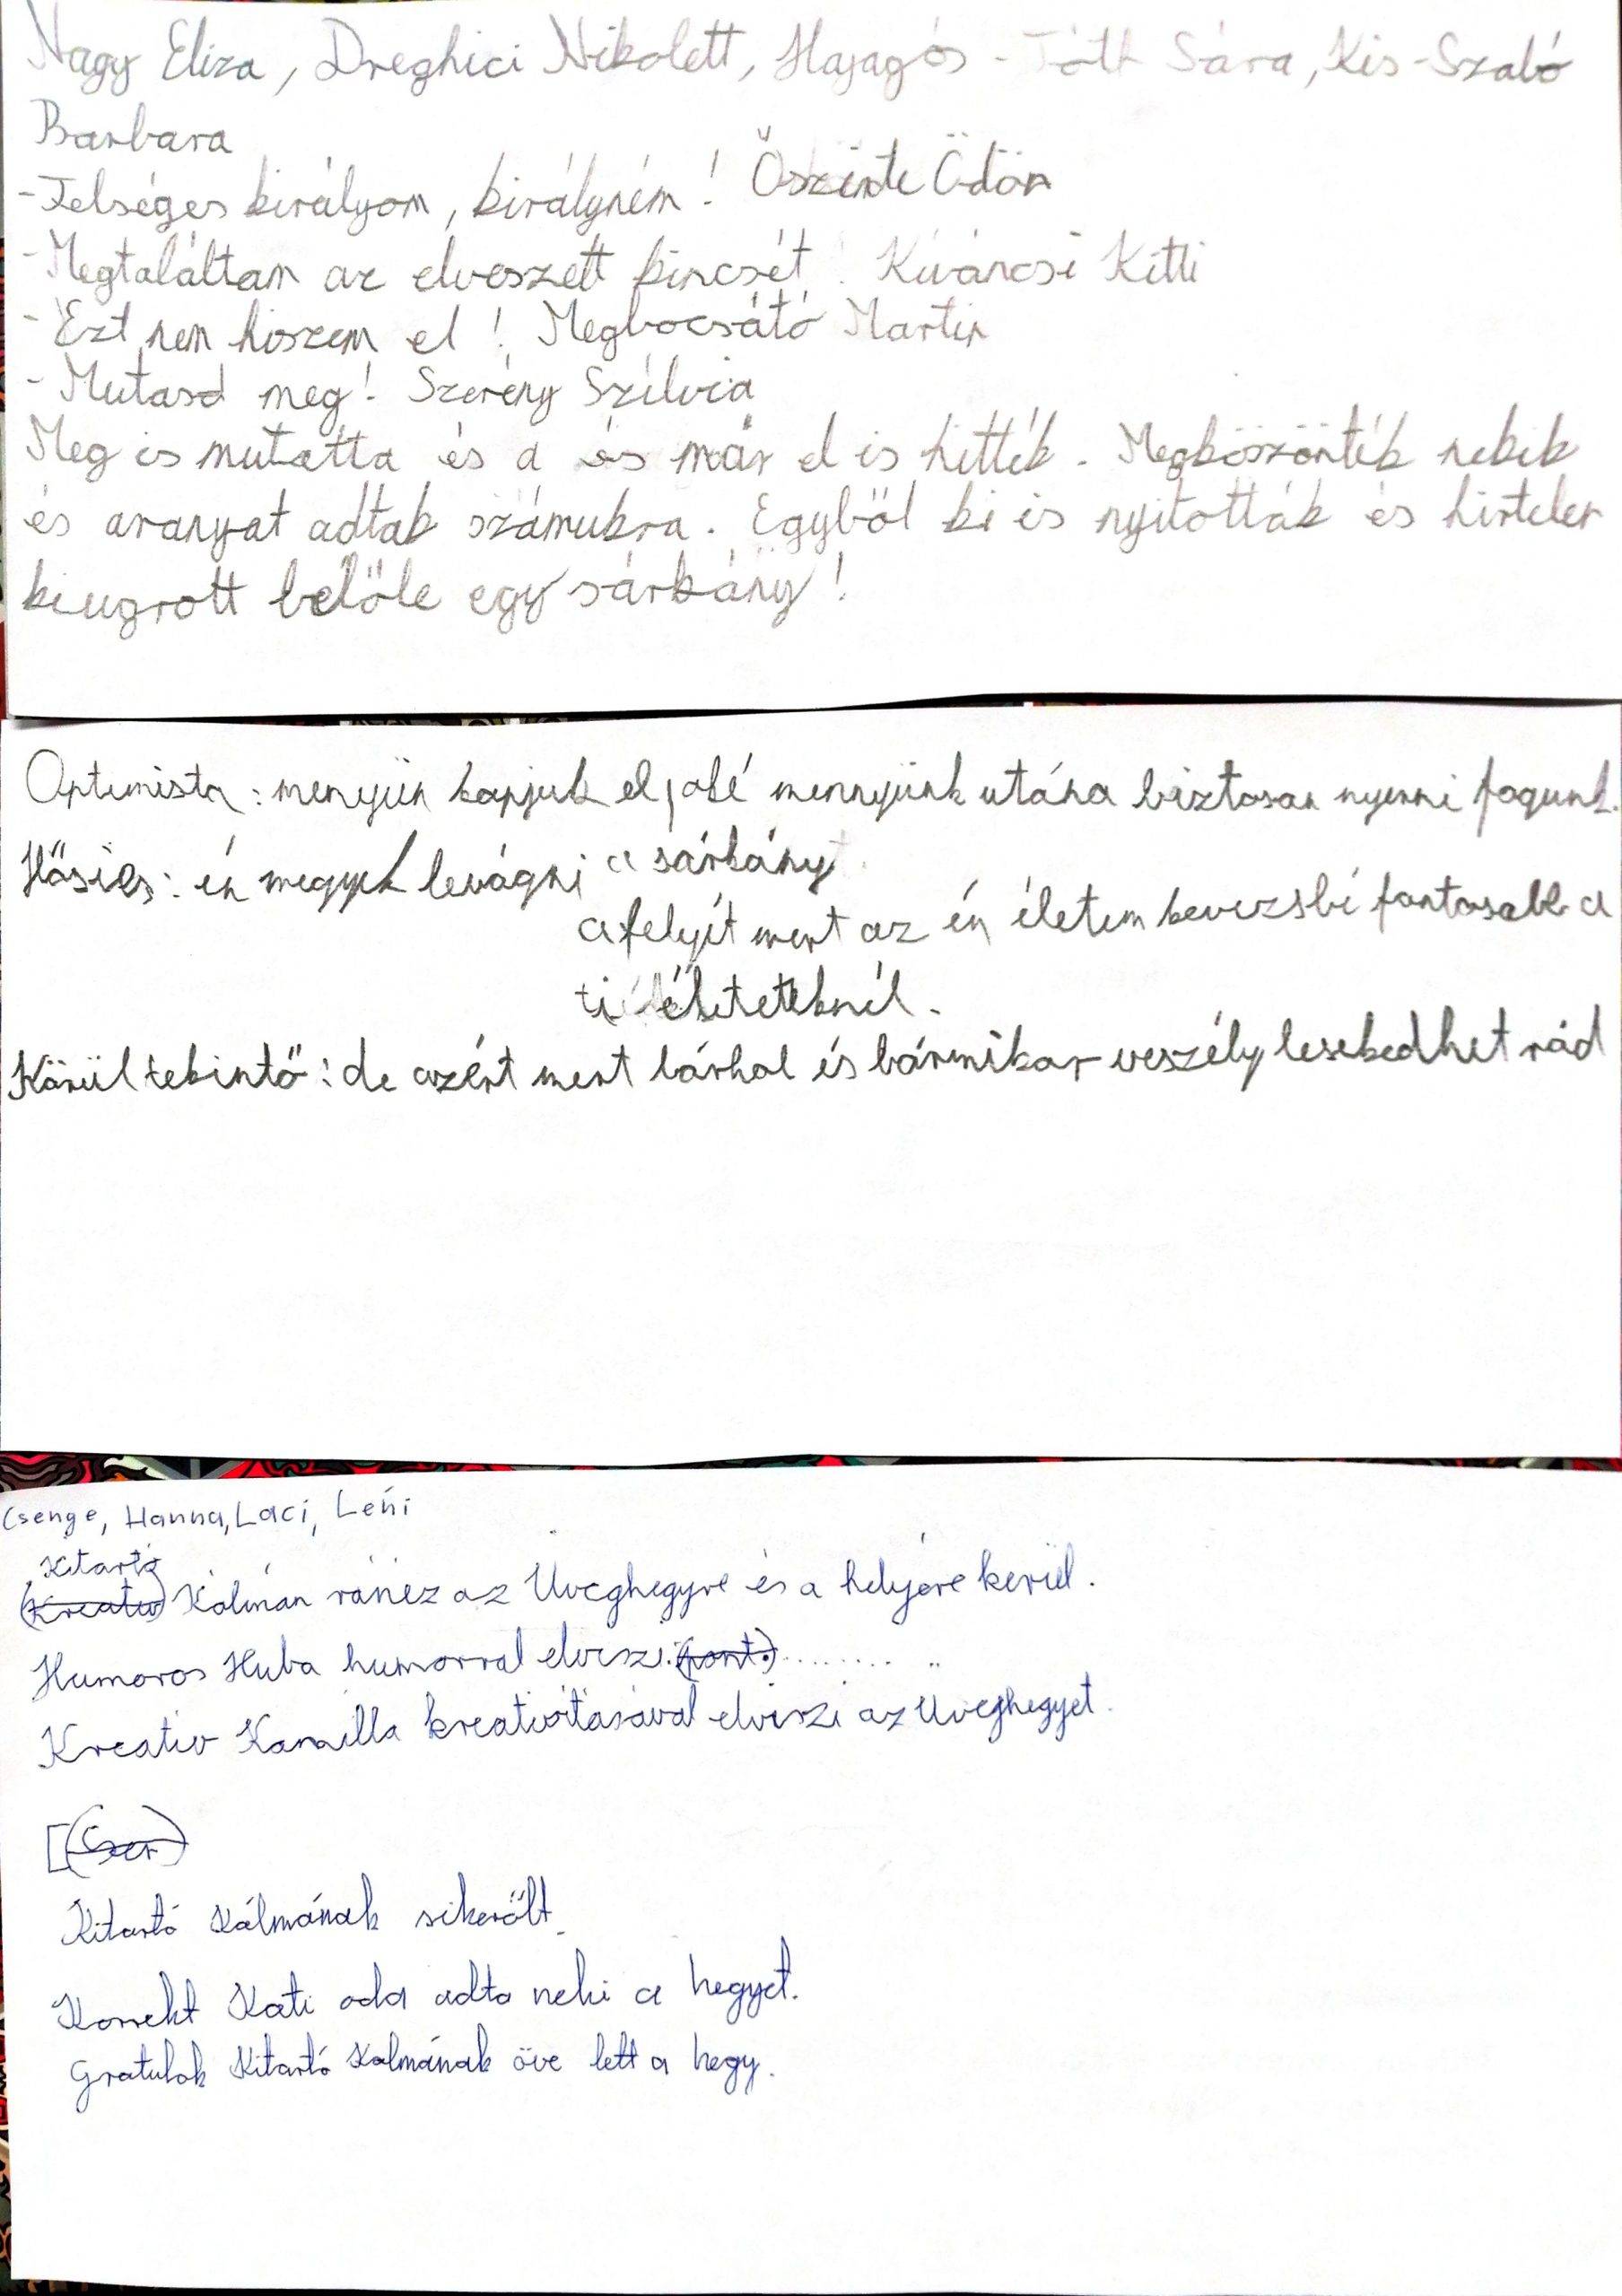 Nagy Eliza, Dreghici Nikolett, Hajagos-Tóth Sára, Kis-Szabó
Barbara
- Felséges királyom, királyném! Őszinte Ödön
- Megtaláltam az elveszett kincsét! Kíváncsi Kitti
- Ezt nem hiszem el! Megbocsátó Martin
- Mutasd meg! Szerény Szilvia
Meg is mutatta és a és már el is hitték. Megköszönték nekik
és aranyat adtak számukra. Egyből ki is nyitották és hirtelen
kiugrott belőle egy sárkány!
Optimista: menyün kapjuk el, oké mennyünk utána biztosan nyerni fogunk.
Hősies: én megyek levágni a sárkány
a felyít mert az én életem kevézsbé fontosabb a
ti életeteknél.
Körültekintő: de azért mert bárhol és bármikor veszély lesekedhet rád
Csenge, Hanna, Laci, Leni
Kitartó
(Kreatív) Kálmán ránéz az Üveghegyre és a helyére kerül.
Humoros Huba humorral elviszi (pont.) ........
Kreatív Kamilla kreativitásával elviszi az Üveghegyet.
Kitartó Kálmának sikerült.
Korrekt Kati oda adta neki a hegyet.
Gratulok Kitartó Kálmának öve lett a hegy.